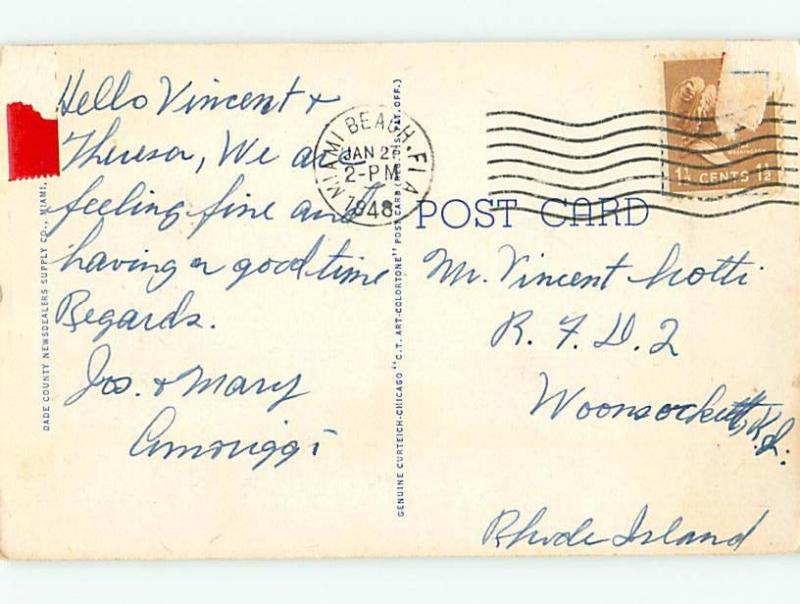 Hello Vincent +
Theresa, We are
feeling fine and
having a good time
Regards.
Jos. + Mary
Amoriggi
DADE COUNTY NEWSDEALERS SUPPLY CO., MIAMI,
GENUINE CURTEICH-CHICAGO "C.T. ART-COLORTONE" POST CARD (REG. U.S. PAT. OFF.)
MIAMI BEACH, FLA
JAN 27
2-PM
1948
1½ CENTS 1½
POST CARD
Mr. Vincent
R. F. D. 2
Woonsockett, R.I.
Rhode Island